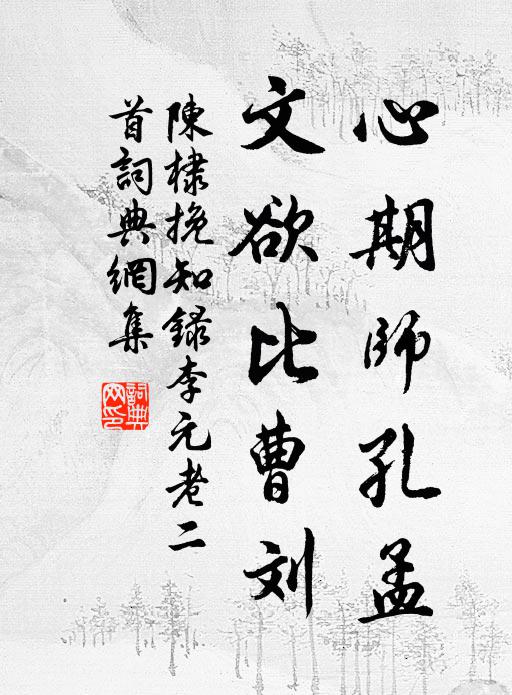 心期師孔孟
文欲比曹刘
陳棣挽知録李元老二
首詞典網集
詞典
网印